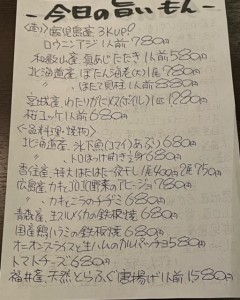 -今日の旨いもん-
(造) 鹿児島産 3KUP!
ロウニンアジ1人前780円
和歌山産 真あじたたき1人前580円
北海道産 ぼたん海老(大)1尾780円
〃 ぼたて貝柱 880円
宮城産 わたりがに(メス)ボイル1匹1280円
桜ユッケ1人前680円
〈一品料理・焼物〉
北海道産 氷下魚(コマイ)あぶり680円
〃 トロほっけ開き半身680円
香住産 特大はたはた一夜干し1尾400円2尾750円
広島産カキと10品野菜のアヒージョ780円
〃 カキとニラのチヂミ680円
青森産 生スルメイカの鉄板焼680円
国産鴨ハラミの鉄板焼680円
オニオンスライスと生ハムのカルパッチョ580円
トマトチーズ680円
福井産 天然とらふぐ唐揚げ1人前1580円